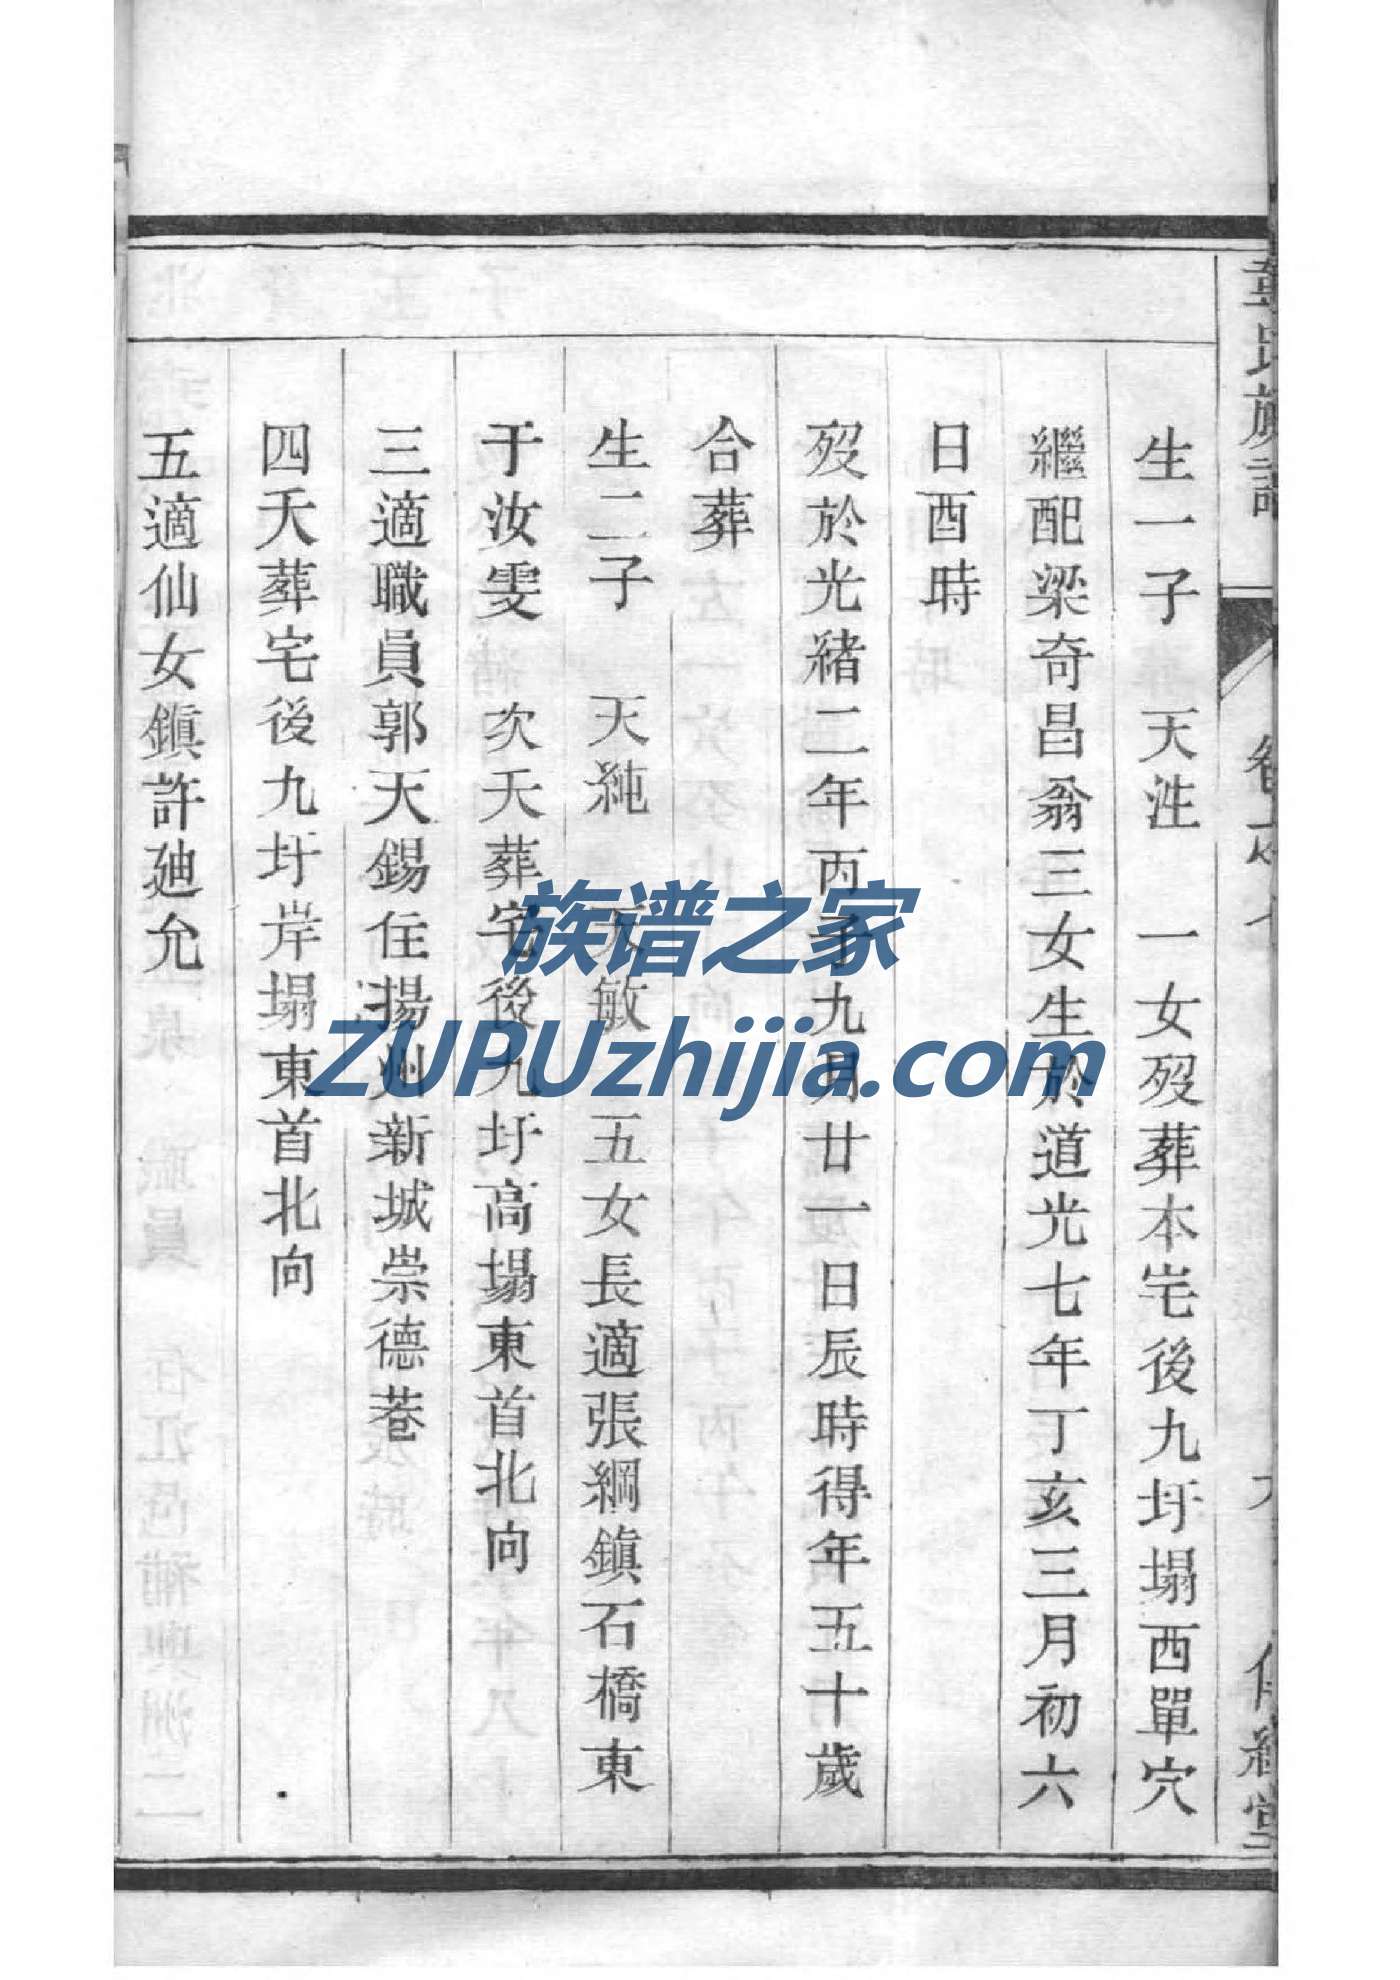 生一子 天泩 一女歿葬本宅後九圩塌西單穴
繼配梁奇昌翁三女生於道光七年丁亥三月初六
日酉時
歿於光緒二年丙子九月廿一日辰時得年五十歲
合葬
生二子 天純 天敏 五女長適張綱鎮石橋東
于汝雯 次夭葬宅後九圩高塌東首北向
三適職員郭天錫住揚州新城崇德巷
四夭葬宅後九圩岸塌東首北向
五適仙女鎮許廸允
族谱之家
ZUPUzhijia.com